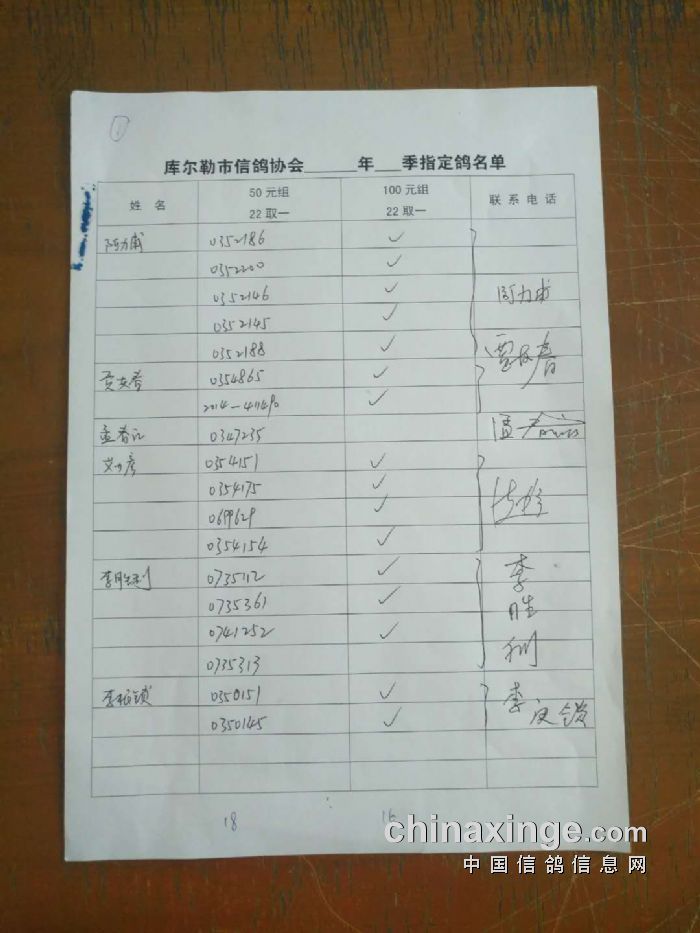 1
库尔勒市信鸽协会______年___季指定鸽名单
姓 名 50元组 22取一 100元组 22取一 联系电话
0352186 ✓
0352200 ✓
0352146 ✓
0352145 ✓
0352188 ✓
0354865 ✓
2014-411490 ✓
0347235
0354151 ✓
0354175 ✓
0699629 ✓
0354154 ✓
李胜利 0735112 ✓ 李胜利
0735361 ✓
0741252 ✓
0735313
0350151 ✓
0350145 ✓
18 16
chinaxinge.com
中国信鸽信息网